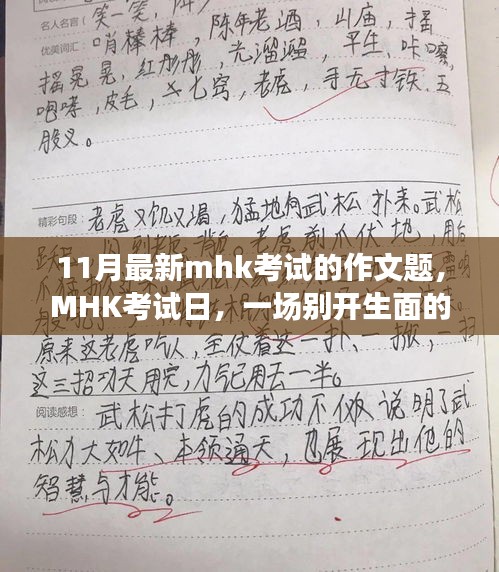 (笑一笑,
名人名言
优美词汇: 哨棒棒,陈年老酒,山庙,摇
摇晃晃,红彤彤,光溜溜,平生,咔嚓,
咆哮,皮毛,七窍,老虎,手无寸铁,五
股叉。
精彩句段: 老虎又饥又渴,猛地向武松扑来。武松
老虎前爪伏地,用后
11月最新mhk考试的作文题,
MHK考试日,一场别开生面的
原来这老虎吃人,全仗着这一扑、一掀、一
这三招功夫用完,力气已用去一半。
阅读感想: 武松打虎的成功不仅说明了武
松力大如牛、本领通天,也展现出他的
智慧与才能。